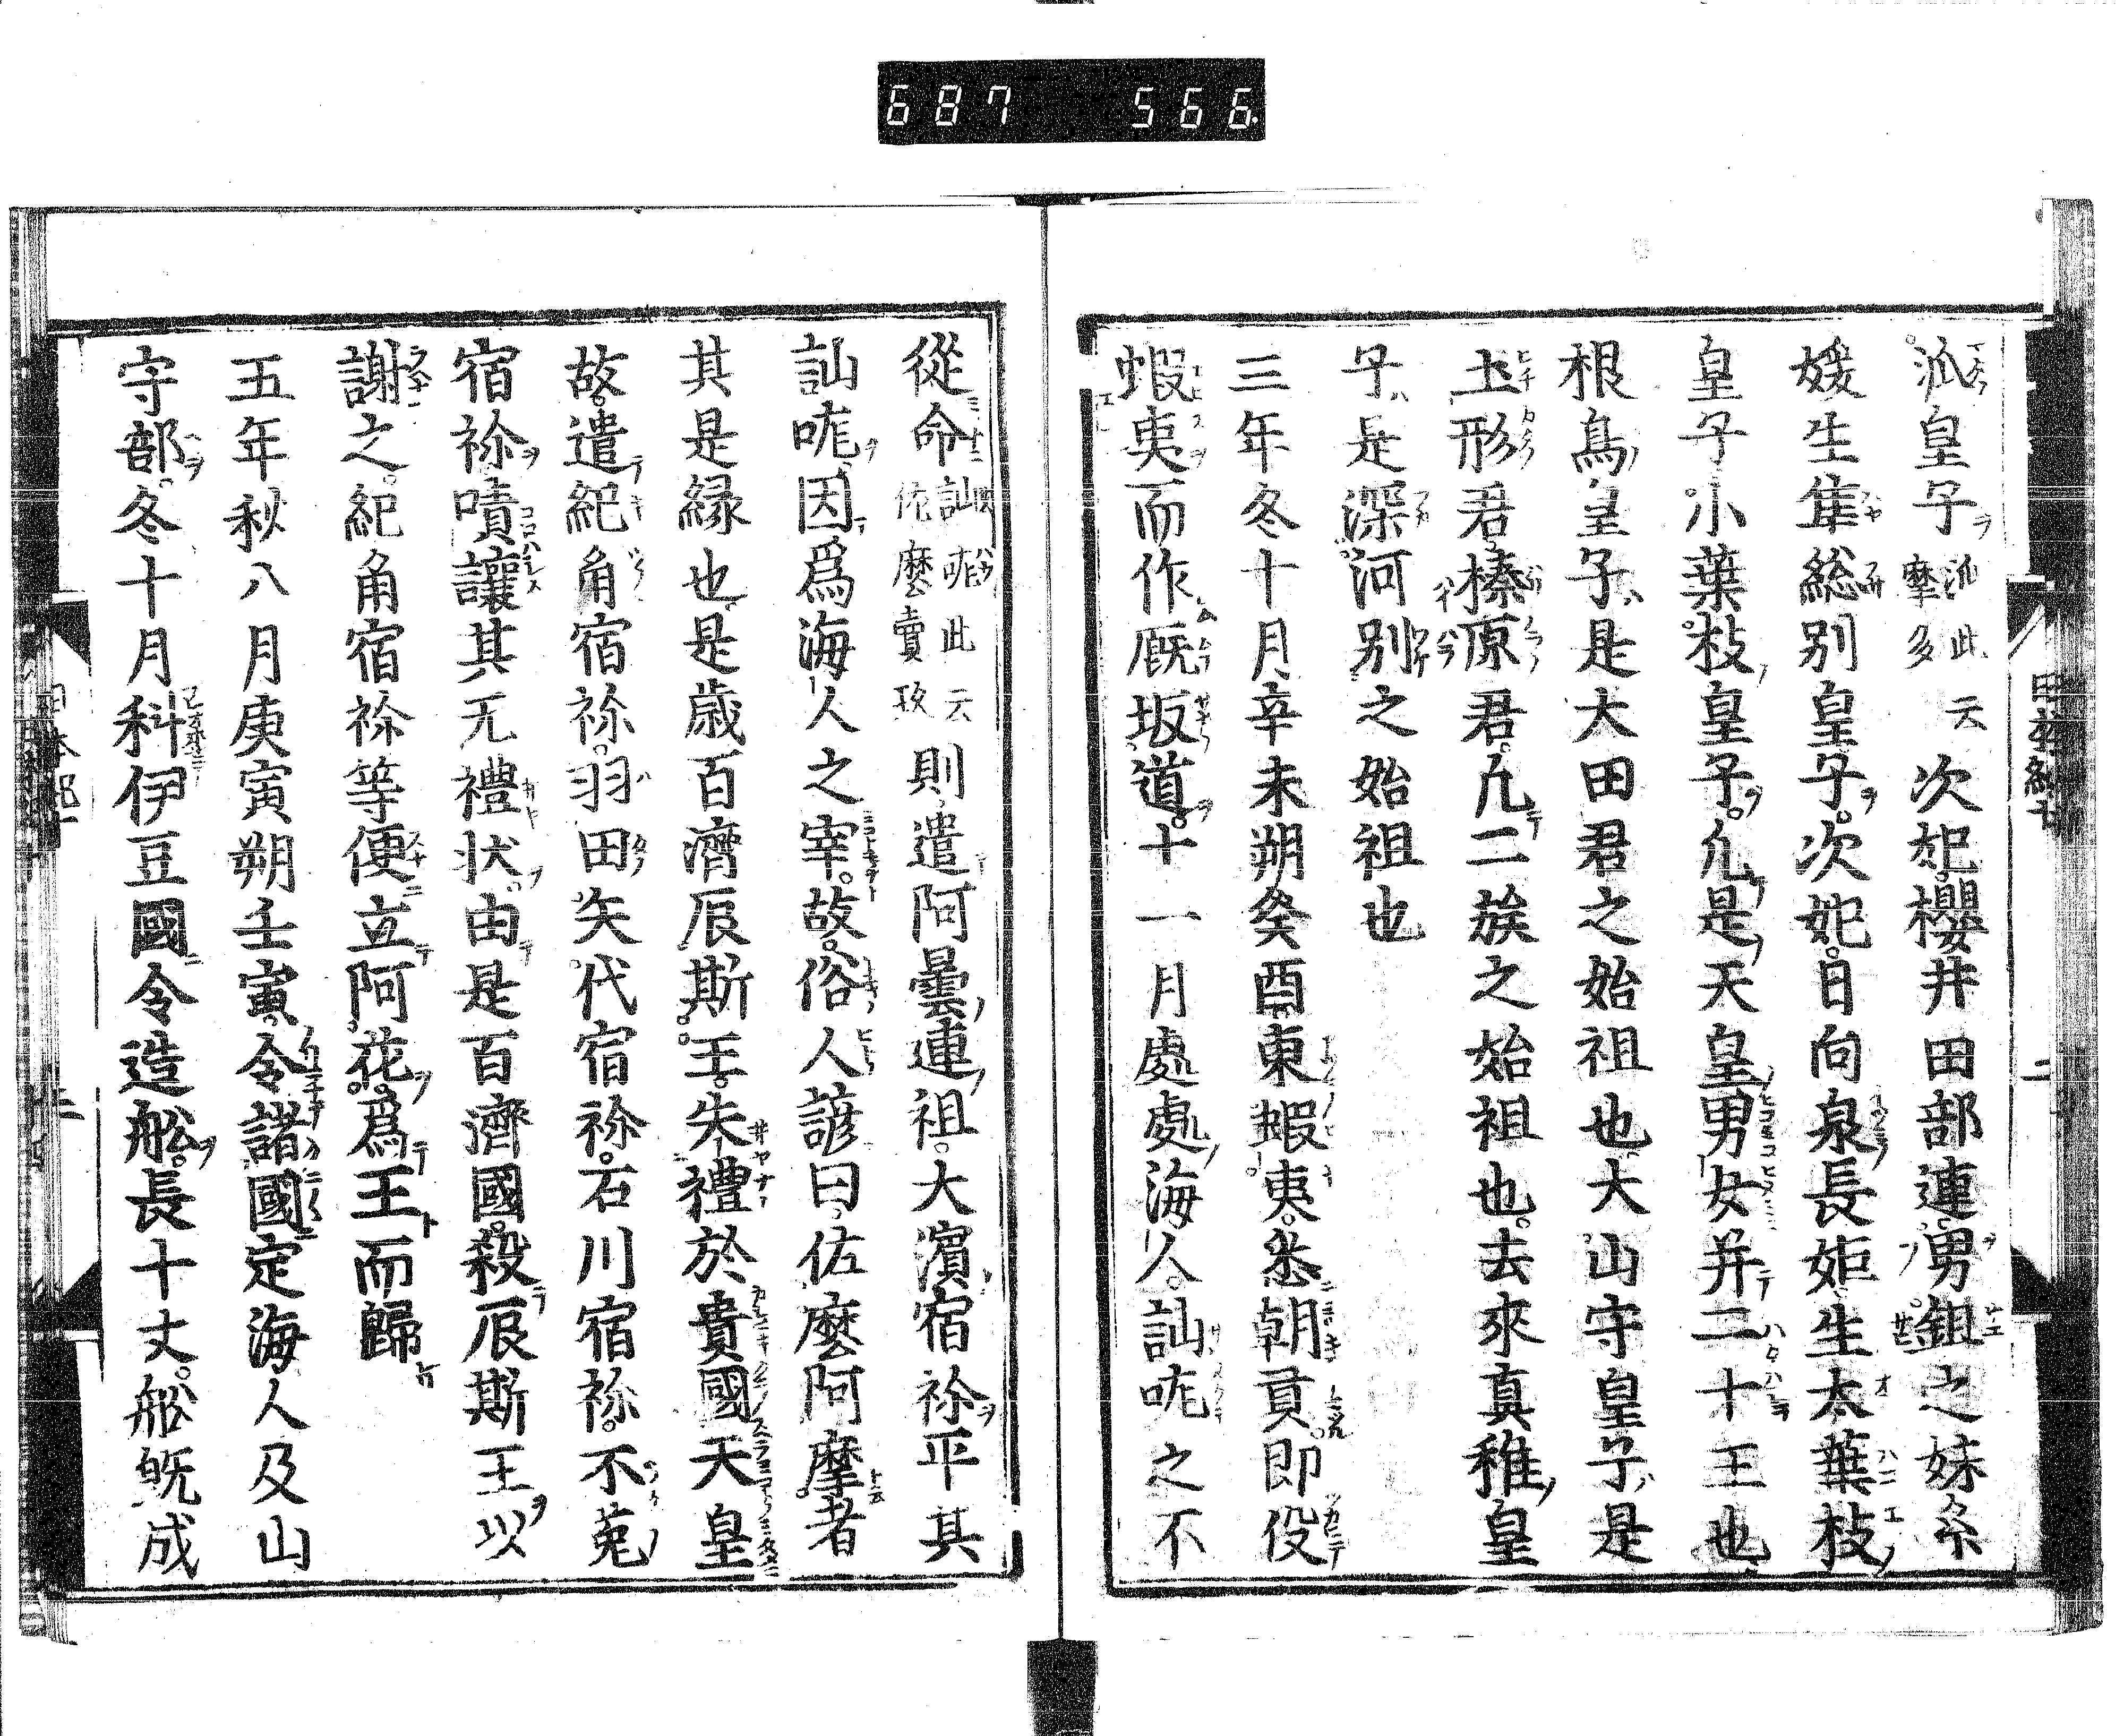 687 566
派皇子派此云摩多次妃櫻井田部連男鉏之妹糸
媛生隼総别皇子次妃日向泉長姫生大葉枝
皇子小葉枝皇子凢是天皇男女并二十王也
根鳥皇子是大田君之始祖也大山守皇子是
土形君榛原君凢二族之始祖也去來真稚皇
子是深河别之始祖也
三年冬十月辛未朔癸酉東蝦夷悉朝貢即役
蝦夷而作厩坂道十一月處處海人訕哤之不
從命訕哤此云佐麼賣玖則遣阿曇連祖大濱宿祢平其
訕哤因爲海人之宰故俗人諺曰佐麼阿摩者
其是緣也是歳百濟辰斯王失禮於貴國天皇
故遣紀角宿祢羽田矢代宿祢石川宿祢木菟
宿祢嘖讓其无禮状由是百濟國殺辰斯王以
謝之紀角宿祢等便立阿花爲王而歸
五年秋八月庚寅朔壬寅令諸國定海人及山
守部冬十月科伊豆國令造舩長十丈舩既成